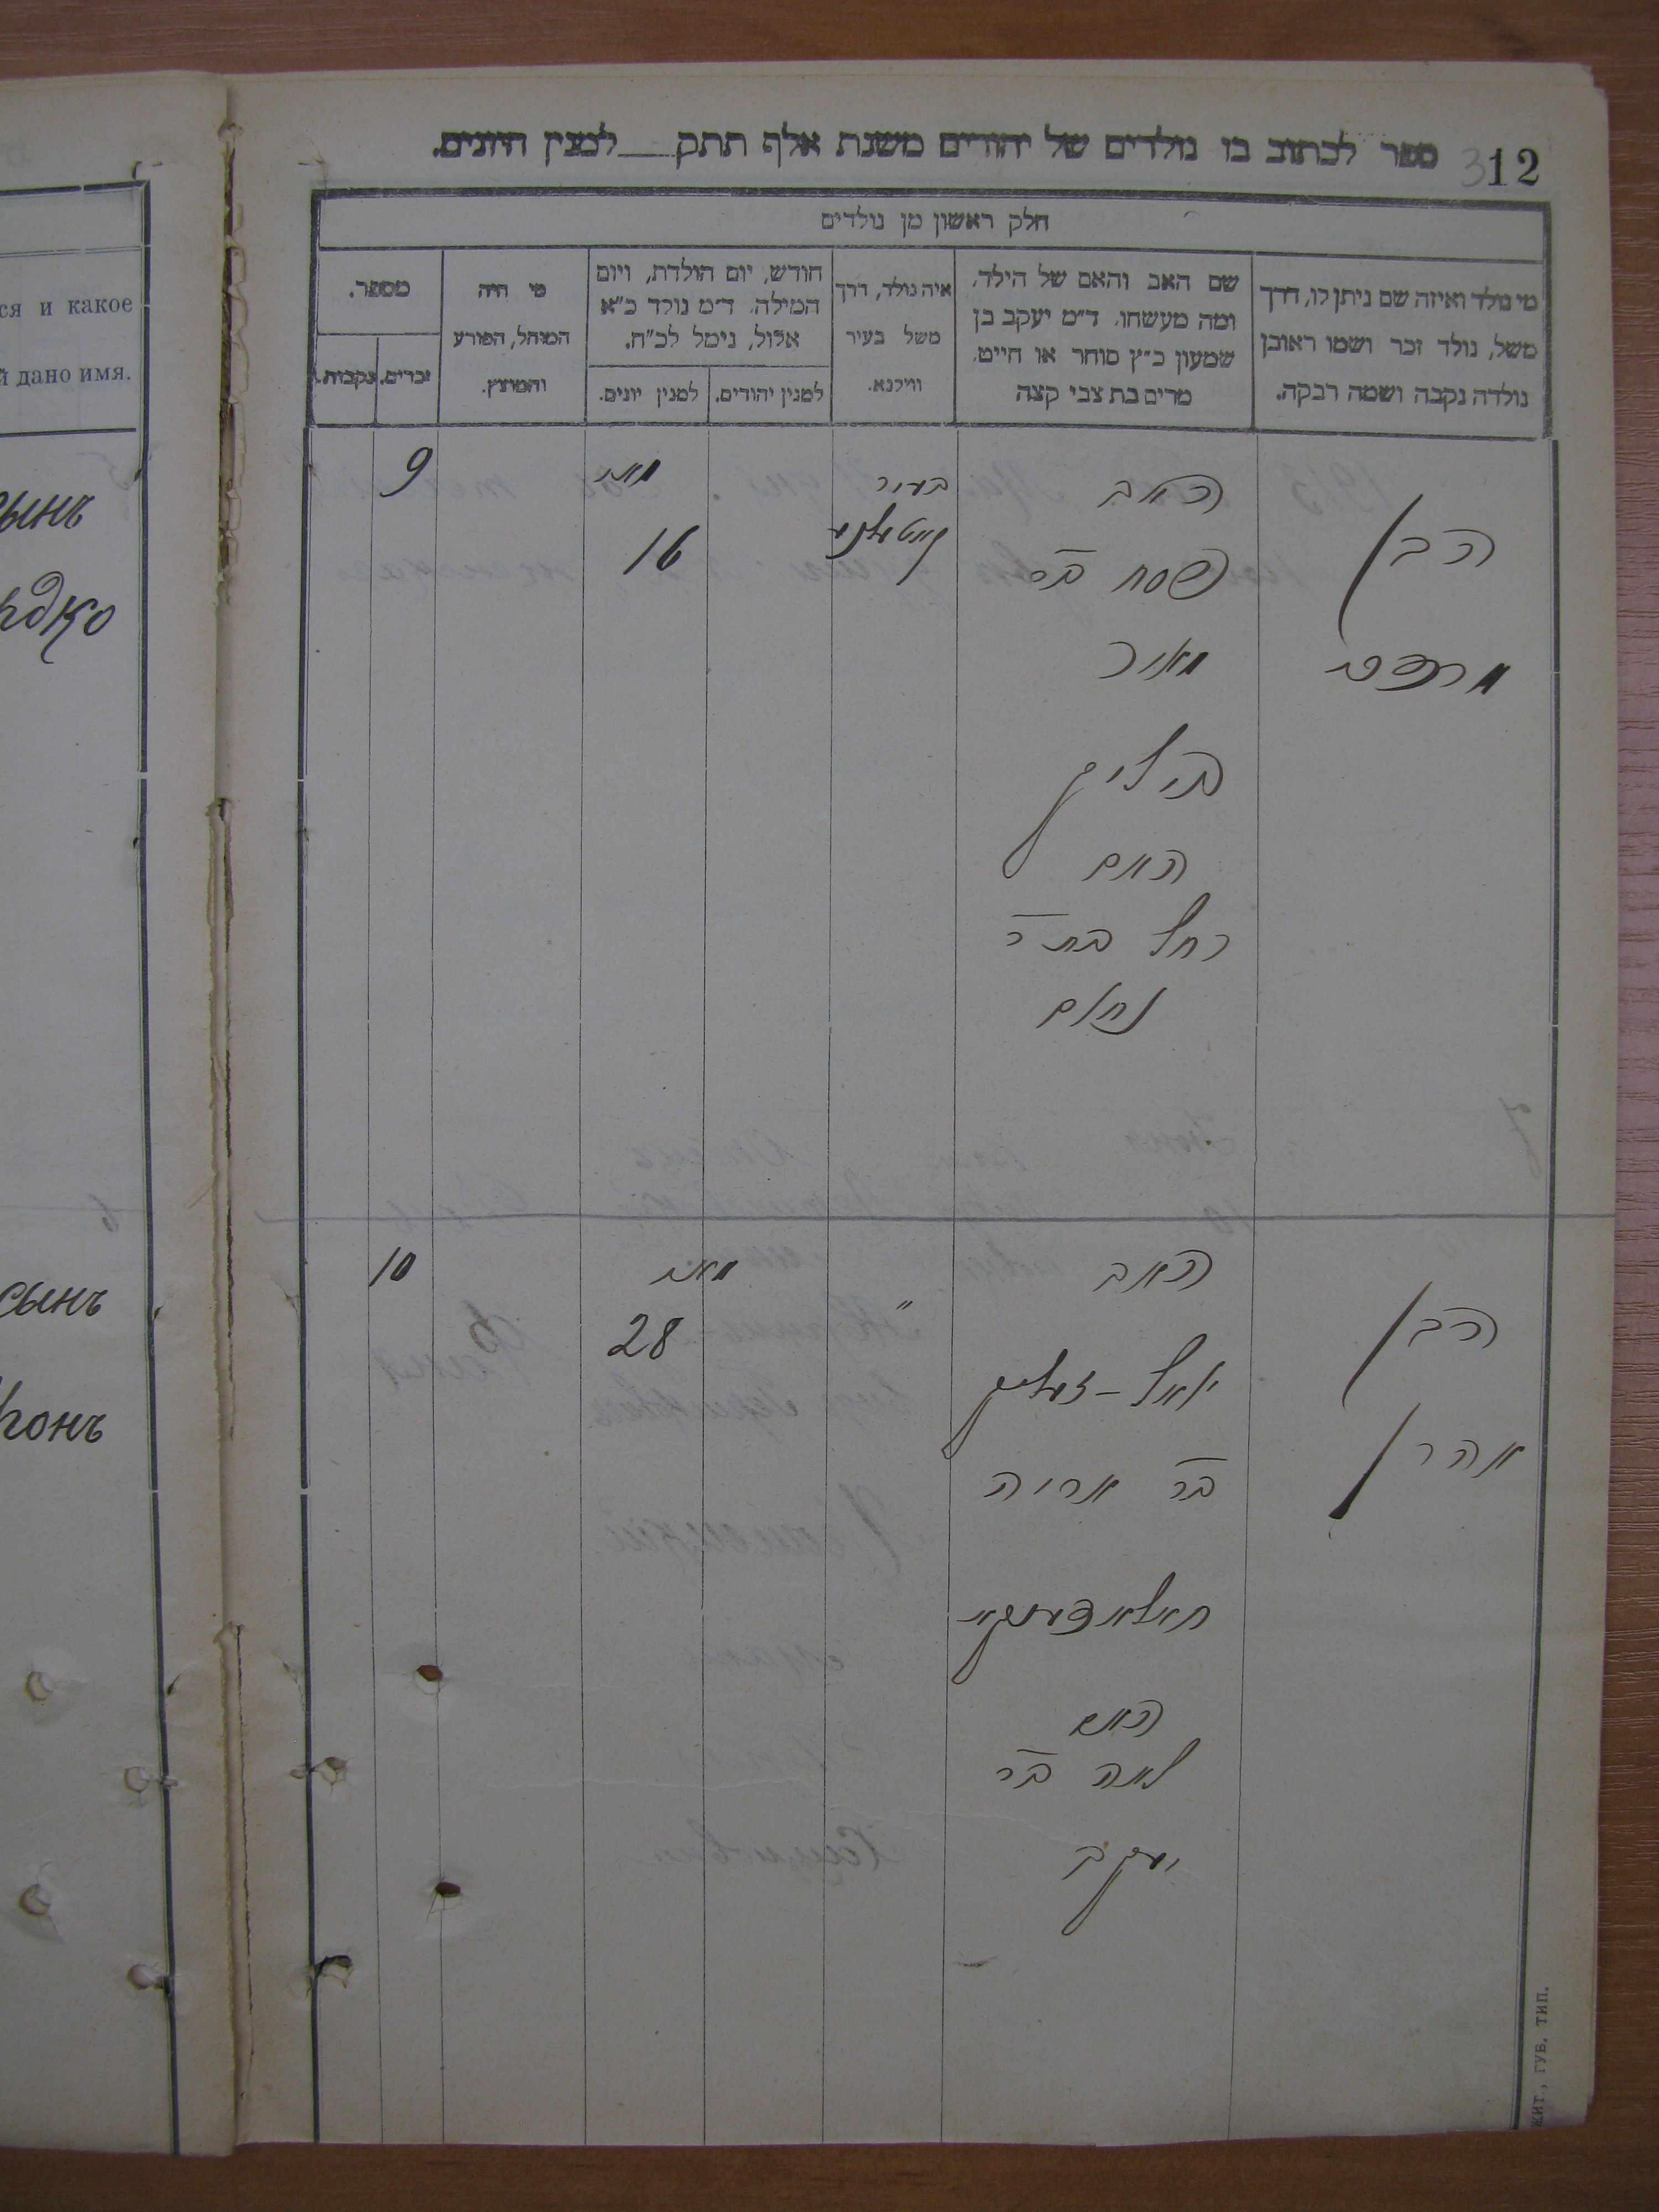 ספר לכתוב בו נולדים של יהודים משנת אלף תתק__ למנין היונים.
312
חלק ראשון מן נולדים
מי נולד ואיזה שם ניתן לו, דרך
משל, נולד זכר ושמו ראובן
נולדה נקבה ושמה רבקה.
שם האב והאם של הילד,
ומה מעשהו. ד״מ יעקב בן
שמעון כ״ץ סוחר או חייט,
מרים בת צבי קצה
איה נולד, דרך
משל בעיר
ווילנא.
חודש, יום הולדת, ויום
המילה. ד״מ נולד כ״א
אלול, נימל לכ״ח.
למנין יהודים.
למנין יונים.
מי היה
המוהל, הפורע
והמוצץ.
מספר.
זכרים.
נקבות.
הבן
מרדכי
האב
פסח בר
מאיר
האם
רחל בת ר
נחום
בעיר
מאי
16
9
הבן
אהרן
האב
יואל-זעליג
בר אריה
האם
לאה בר
יעקב
״
מאי
28
10
ся и какое
й дано имя.
сынъ
рдко
сынъ
ронъ
ЖИТ., ГУБ. ТИП.